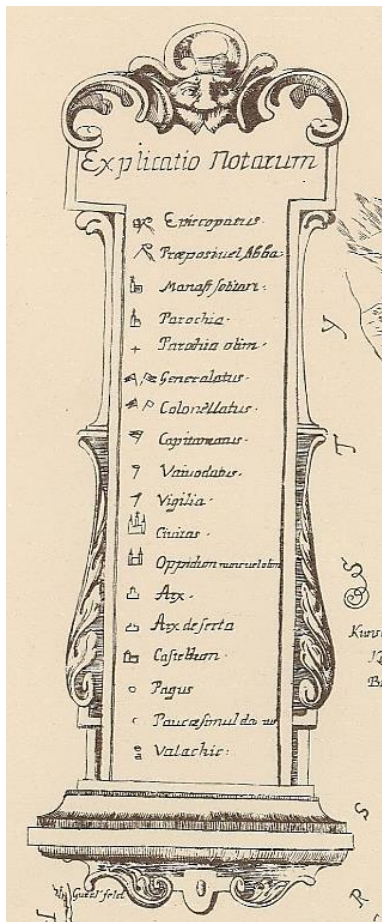 Explicatio Notarum
Episcopatus.
Præposi vel Abba:
Parochia.
Parochia olim.
Generalatus.
Colonellatus.
Capitanatus.
Vaivodatus.
Vigilia.
Civitas.
Oppidum nunc vel olim
Arx.
Arx deserta
Castellum.
Pagus
Paucæ simul do
Valachic:
Y
T
S
S
R